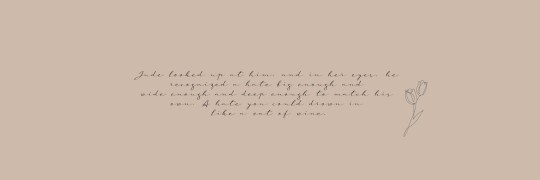 Jude looked up at him, and in her eyes, he
recognized a hate big enough and
wide enough and deep enough to match his
own. A hate you could drown in
like a vat of wine.